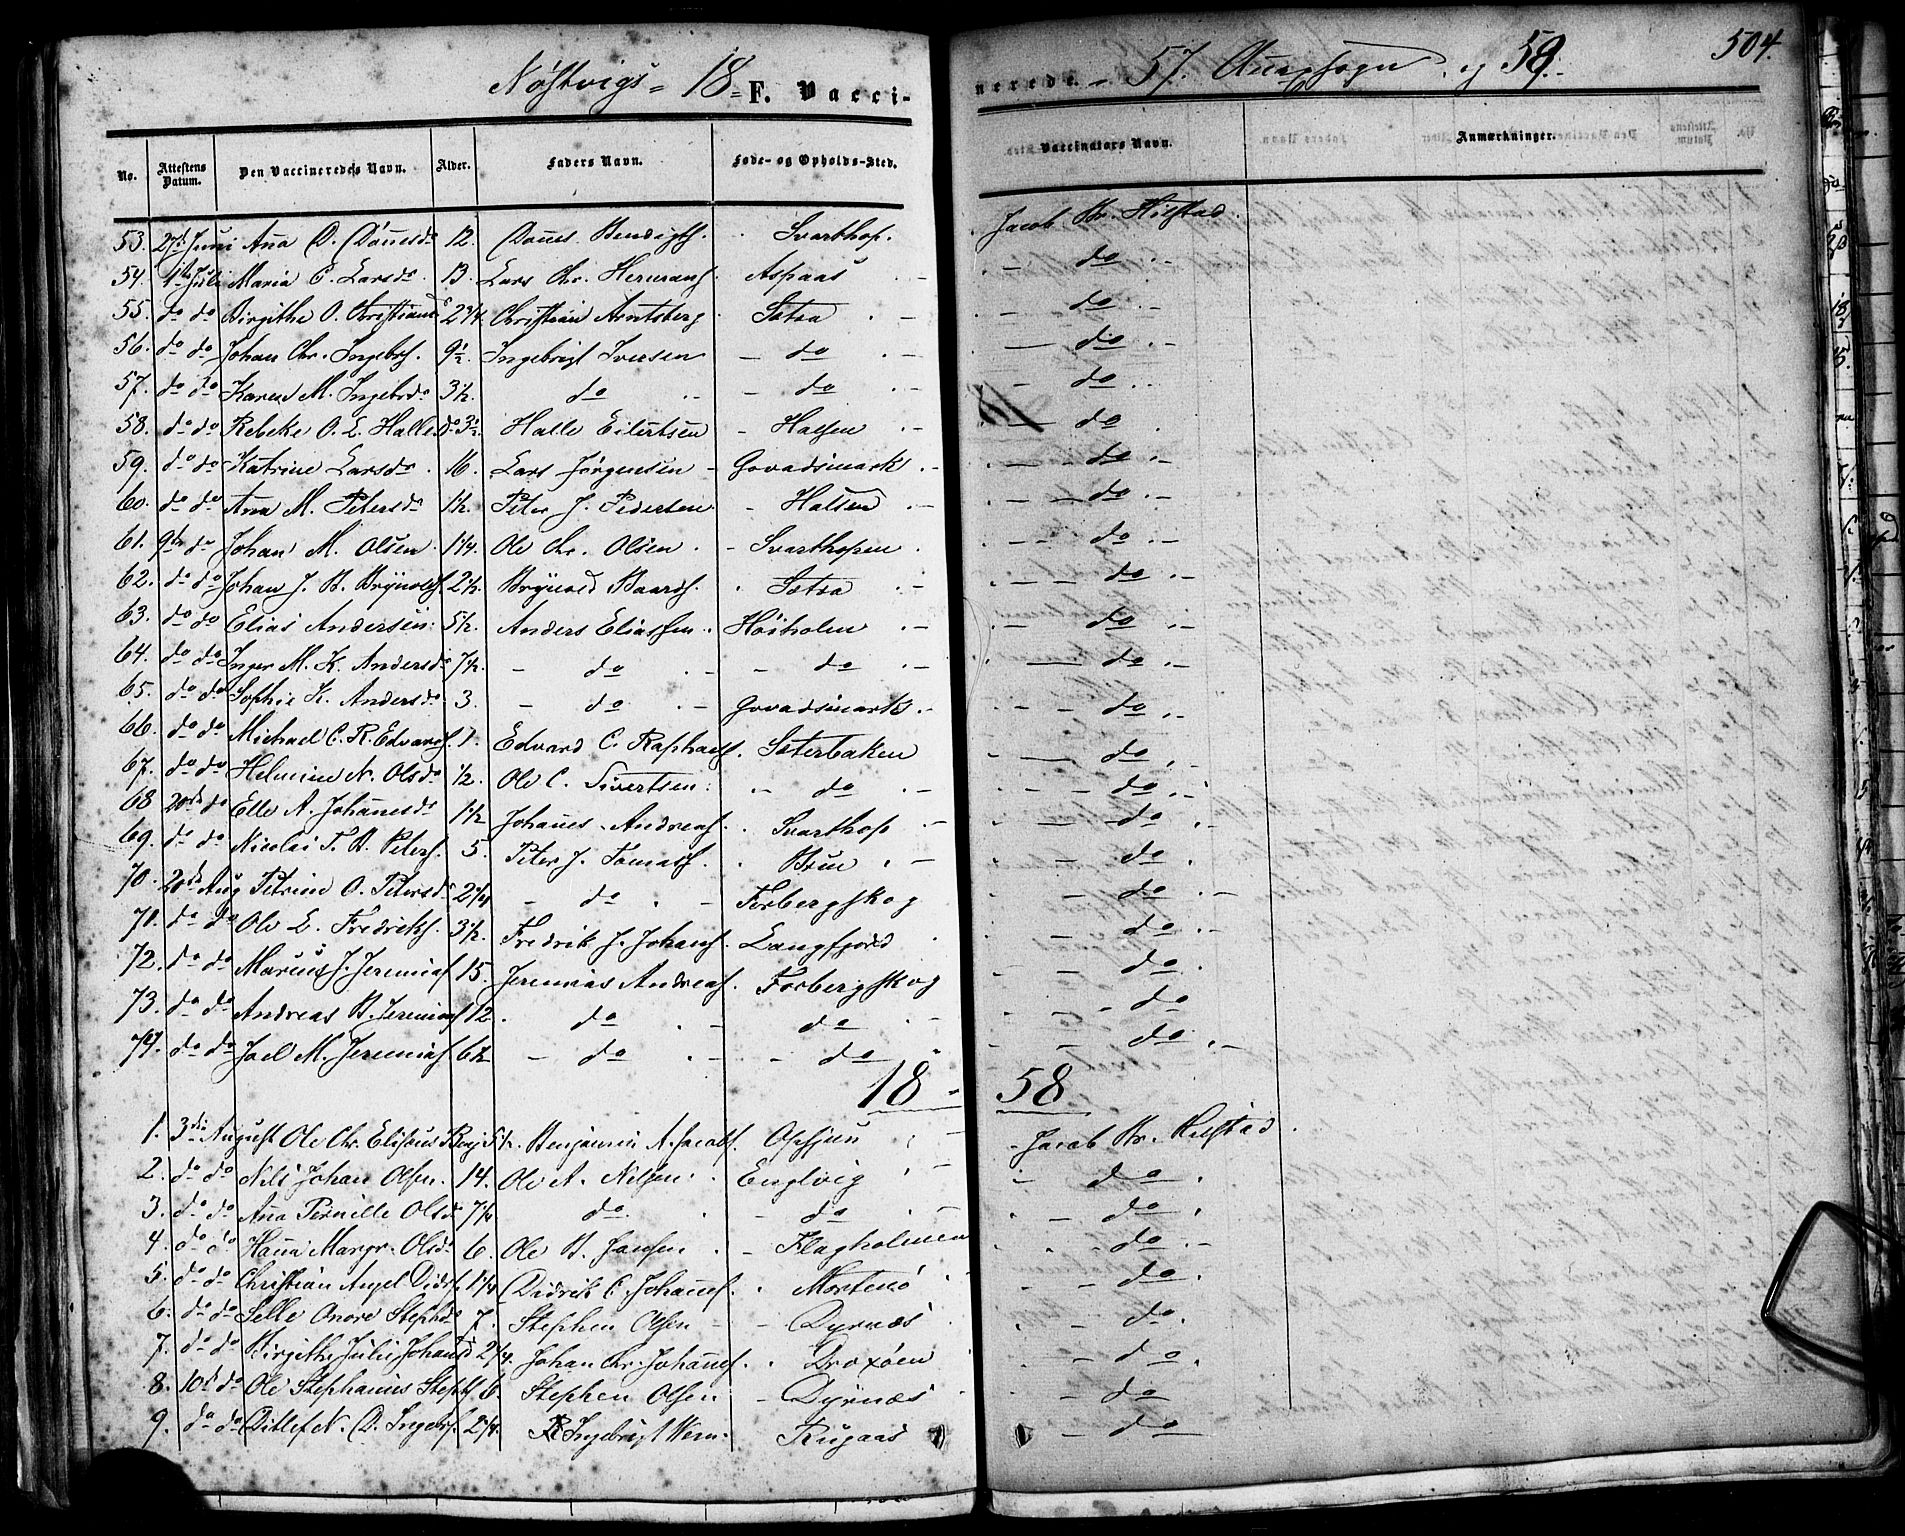 Nøstvigs - 18 F. Vacci- nerede - 57. Annexsogn og 58. 504.
No. Attestens Datum. Den Vaccineredes Navn. Alder. Faders Navn. Føde- og Opholds-Sted. Vaccinators Navn. Anmærkninger.
53. 27de Juni Ana D. Dönesdr 12. Dönes Bendigts. Svarthop. Jacob Br. Hilstad.
54. 1ste Juli Maria C. Larsdr 13. Lars Chr. Hermans. Aspaas - do
55. do do Birgithe O. Christiansd 2 3/4. Christian Arntsberg Sætra - do
56. do do Johan Chr. Ingebrs. 9 1/2. Ingebrigt Iversen - do - do
57. do do Karen M. Ingebrdr 3 1/2. do - do - do
58. do do Rebeke O. E. Halledr 3 1/2. Halle Eilertsen - Halsen - do
59. do do Katrine Larsdr 16. Lars Jörgensen - Govadsmark - do
60. do do Ana M. Petersdr 1 1/2. Peter J. Pedersen - Halsen - do
61. 9de do Johan M. Olsen 1 1/4. Ole Chr. Olsen - Svarthopen - do
62. do do Johan J. B. Brynvolds. 2 1/2. Brynvold Baards. Sætra - do
63. do do Elias Andersen 5 1/2. Anders Eliassen Höiholen - do
64. do do Inger M. K. Andersdr 7 1/2. - do - do - do
65. do do Sophie K. Andersdr 3. - do - Govadsmark - do
66. do do Michael C. R. Edvards. 1. Edvard C. Raphaels. Sæterbaken - do
67. do do Helmine N. Olsdr 1/2. Ole C. Sivertsen - do - do
68 20de do Elle A. Johanesdr 1 1/2 Johanes Andreas. Svarthop - do
69. do do Nicolai T. B. Peters. 5. Peter J. Tomass. Brun - do
70. 20de Aug Petrine O. Petersdr 2 1/4 - do - Forbergskog - do
71. do do Ole L. Fredriks. 3 1/2. Fredrik J. Johans. Langfjord - do
72. do do Marcus J. Jeremias. 15. Jeremias Andreas. Forbergskog - do
73. do do Andreas B. Jeremias. 12 do - do - do
74. do do Joel M. Jeremias. 6 1/2 - do - do - do
18 - 58
1. 3die August Ole Chr. Eliseus Benj. Benjamin A. Jacobs. Opsjun Jacob Br. Hilstad.
2. do do Nils Johan Olsen. 14. Ole A. Nilsen. Englvig - do
3. do do Ana Pernille Olsdr 7 1/4 do - do - do
4. do do Hana Margr. Olsdr 6. Ole B. Jansen - Flagholmen - do
5. do do Christian Angel Didr. 1 1/4 Didrik C. Johans. Mortenö - do
6. do do Selle Onore Stephdr 7. Stephen Olsen - Dyrnæs - do
7. do do Birgithe Julie Johansd 2 1/4. Johan Chr. Johans. Droxöen - do
8. 10de do Ole Stephanus Steph. 6. Stephen Olsen - Dyrnæs - do
9. do do Ditlef N. D. Ingebrs. 2 1/4. Ingebrigt Rugaas - do